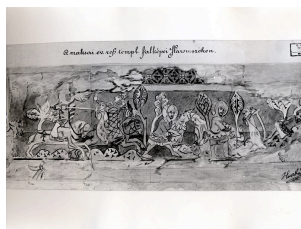 A maksai ev. ref. templ. falképei Háromszéken.